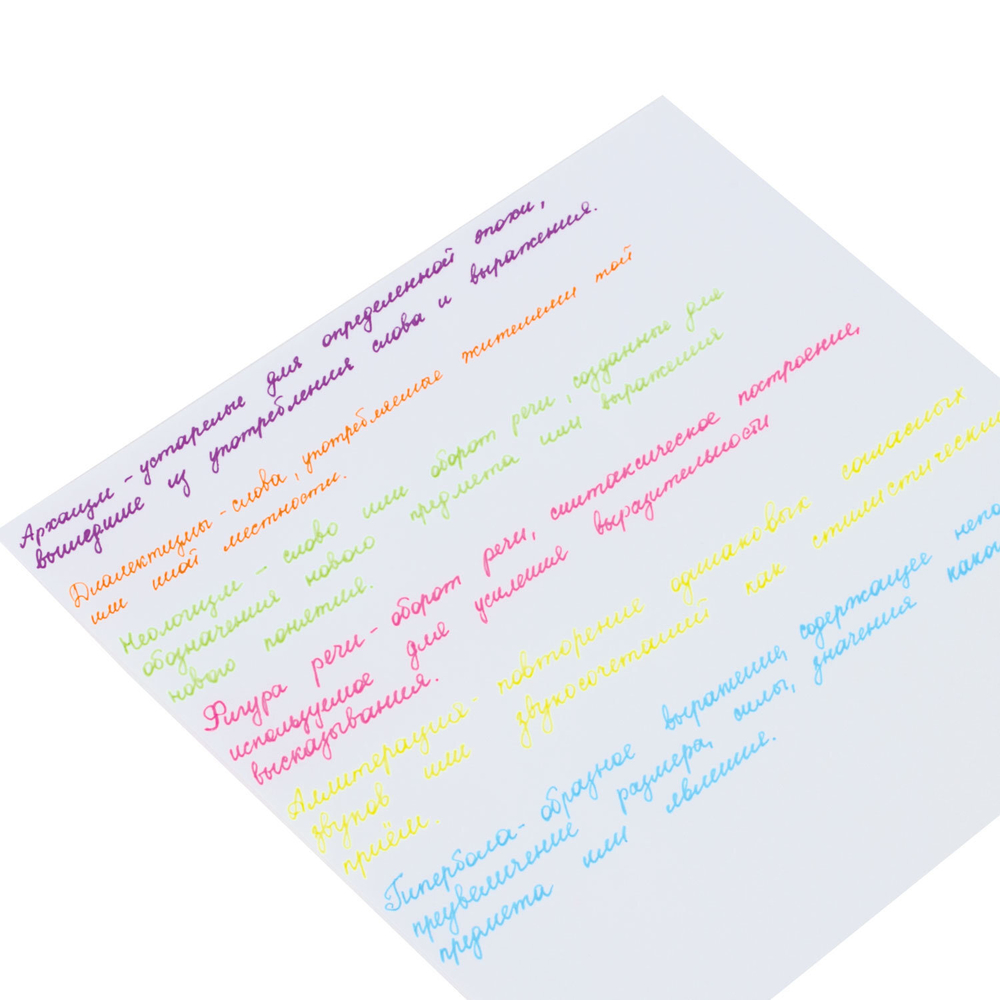 Архаизм - устарелые для определенной эпохи,
вышедшие из употребления слова и выражения.
Диалектизмы - слова, употребляемые жителями той
или иной местности.
Неологизм - слово или оборот речи, созданные для
обозначения нового предмета или выражения
нового понятия.
Фигура речи - оборот речи, синтаксическое построение,
используемое для усиления выразительности
высказывания.
Аллитерация - повторение одинаковых согласных
звуков или звукосочетаний как
приём.
Гипербола - образное выражение, содержащее
преувеличение размера, силы, значения
предмета или явления.